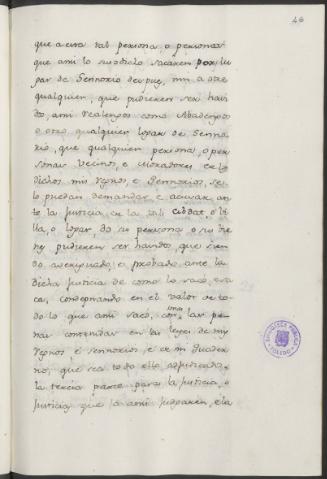 46
que a essa tal persona, o personas
que ansi lo susodicho sacaren por lu
gar de Sennorio de quie, nin a otre
qualquier, que pudieren ser havi
do, ansi realengos como Abadengos
o otro qualquier lugar de Senno
rio, que qualquier persona, o per
sonas vecinos, e moradores en los
dichos mis regnos, e Sennorios, se
lo puedan demandar e acusar an
te la justicia en la tal cibdat, o Vi
lla, o lugar do su persona o sus bie
nes pudieren ser havidos, que sien
do averiguado, e probado ante la
dicha justicia de como lo saco, e sa
ca, condepnando en el valor de to
do lo que ansi saco, con mas las pe
nas contenidas en las leyes de mis
regnos e sennorios, e en mi quader
no, que sea todo ello adjudicado,
la tercia parte para la justicia, o
justicias que lo ansi judgaren, e la
BIBLIOTECA PUBLICA
TOLEDO